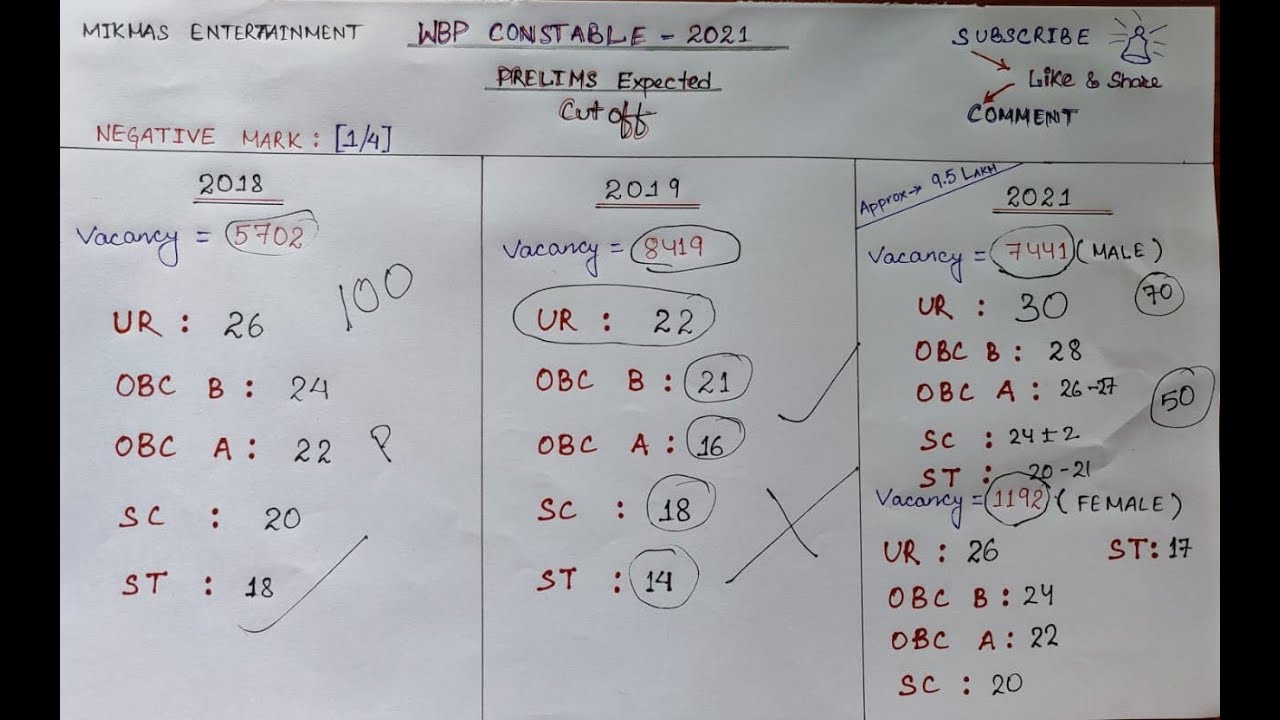 MIKMAS ENTERTAINMENT
WBP CONSTABLE - 2021
SUBSCRIBE
PRELIMS Expected
Cut off
Like & Share
COMMENT
NEGATIVE MARK : [1/4]
2018
Vacancy = 5702
100
UR : 26
OBC B : 24
OBC A : 22
P
SC : 20
ST : 18
2019
Vacancy = 8419
UR : 22
OBC B : 21
OBC A : 16
SC : 18
ST : 14
Approx → 9.5 LAKH
2021
Vacancy = 7441 (MALE)
70
UR : 30
OBC B : 28
OBC A : 26-27
50
SC : 24 ± 2
ST : 20-21
Vacancy = 1192 (FEMALE)
UR : 26 ST : 17
OBC B : 24
OBC A : 22
SC : 20